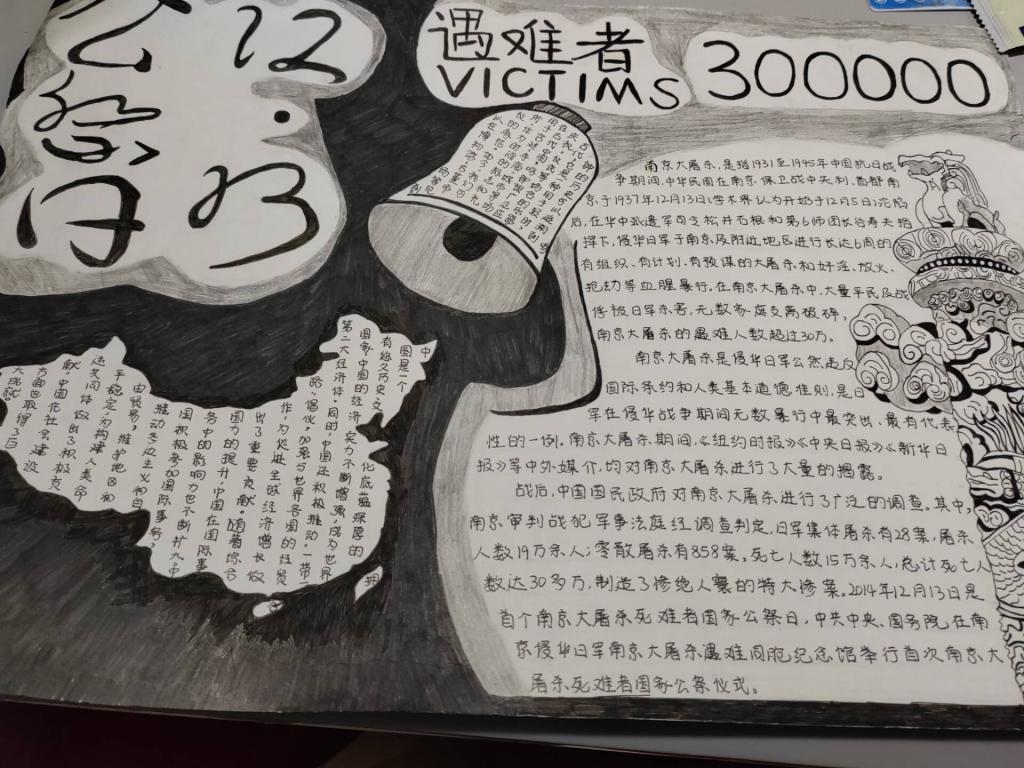 公祭日
12·13
遇难者
VICTIMS
300000
南京大屠杀,是指1931至1945年中国抗日战
争期间,中华民国在南京保卫战中失利、首都南
京于1937年12月13日(学术界认为开始于12月5日)沦陷
后,在华中派遣军司令松井石根和第6师团长谷寿夫指
挥下,侵华日军于南京及附近地区进行长达6周的
有组织、有计划、有预谋的大屠杀和奸淫、放火、
抢劫等血腥暴行,在南京大屠杀中,大量平民及战
俘被日军杀害,无数家庭支离破碎,
南京大屠杀的遇难人数超过30万。
南京大屠杀是侵华日军公然违反
国际条约和人类基本道德准则,是日
军在侵华战争期间无数暴行中最突出、最有代表
性的一例,南京大屠杀期间,《纽约时报》《中央日报》《新华日
报》等中外媒介,均对南京大屠杀进行了大量的揭露。
战后,中国国民政府对南京大屠杀进行了广泛的调查。其中,
南京审判战犯军事法庭经调查判定,日军集体屠杀有28案,屠杀
人数19万余人;零散屠杀有858案,死亡人数15万余人,总计死亡人
数达30多万,制造了惨绝人寰的特大惨案。2014年12月13日是
首个南京大屠杀死难者国家公祭日,中共中央、国务院在南
京侵华日军南京大屠杀遇难同胞纪念馆举行首次南京大
屠杀死难者国家公祭仪式。
中国是一个拥
有悠久历史文化底蕴深厚的
国家,中国的经济实力不断增强,成为世界
第二大经济体。同时,中国还积极推动“一带一
路”倡议,加强与世界各国的经贸
合作,为促进全球经济增长做
出了重要贡献。随着综合
国力的提升,中国在国际事
务中的影响力也不断扩大。中
国积极参加国际事务,
推动多边主义和自
由贸易,维护地区和
平稳定,为构建人类命
运共同体做出了积极贡
献。中国在社会建设
方面也取得了巨
大成就。